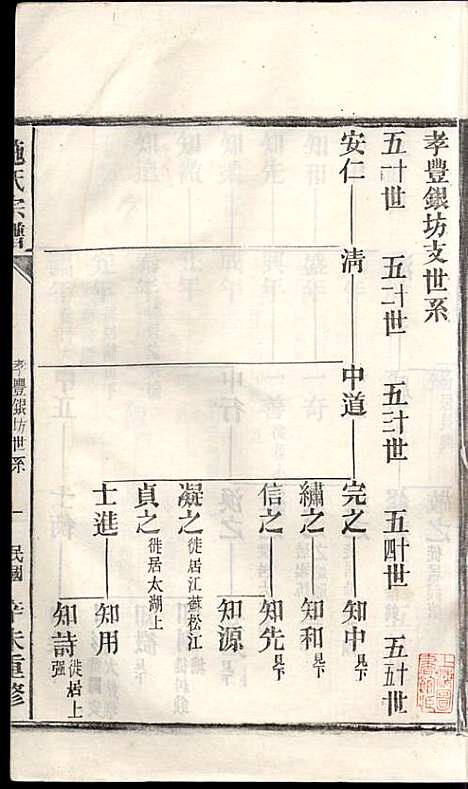 孝豐銀坊支世系
五十一世 五十二世 五十三世 五十四世 五十五世
安仁 清 中道 完之 知中 見下
繡之 知和 見下
信之 知先 見下
知源
凝之 徙居江蘇松江
貞之 徙居太湖上
士進 知用
知詩 徙居上強
施氏宗譜 孝豐銀坊世系 一 民國辛未重修